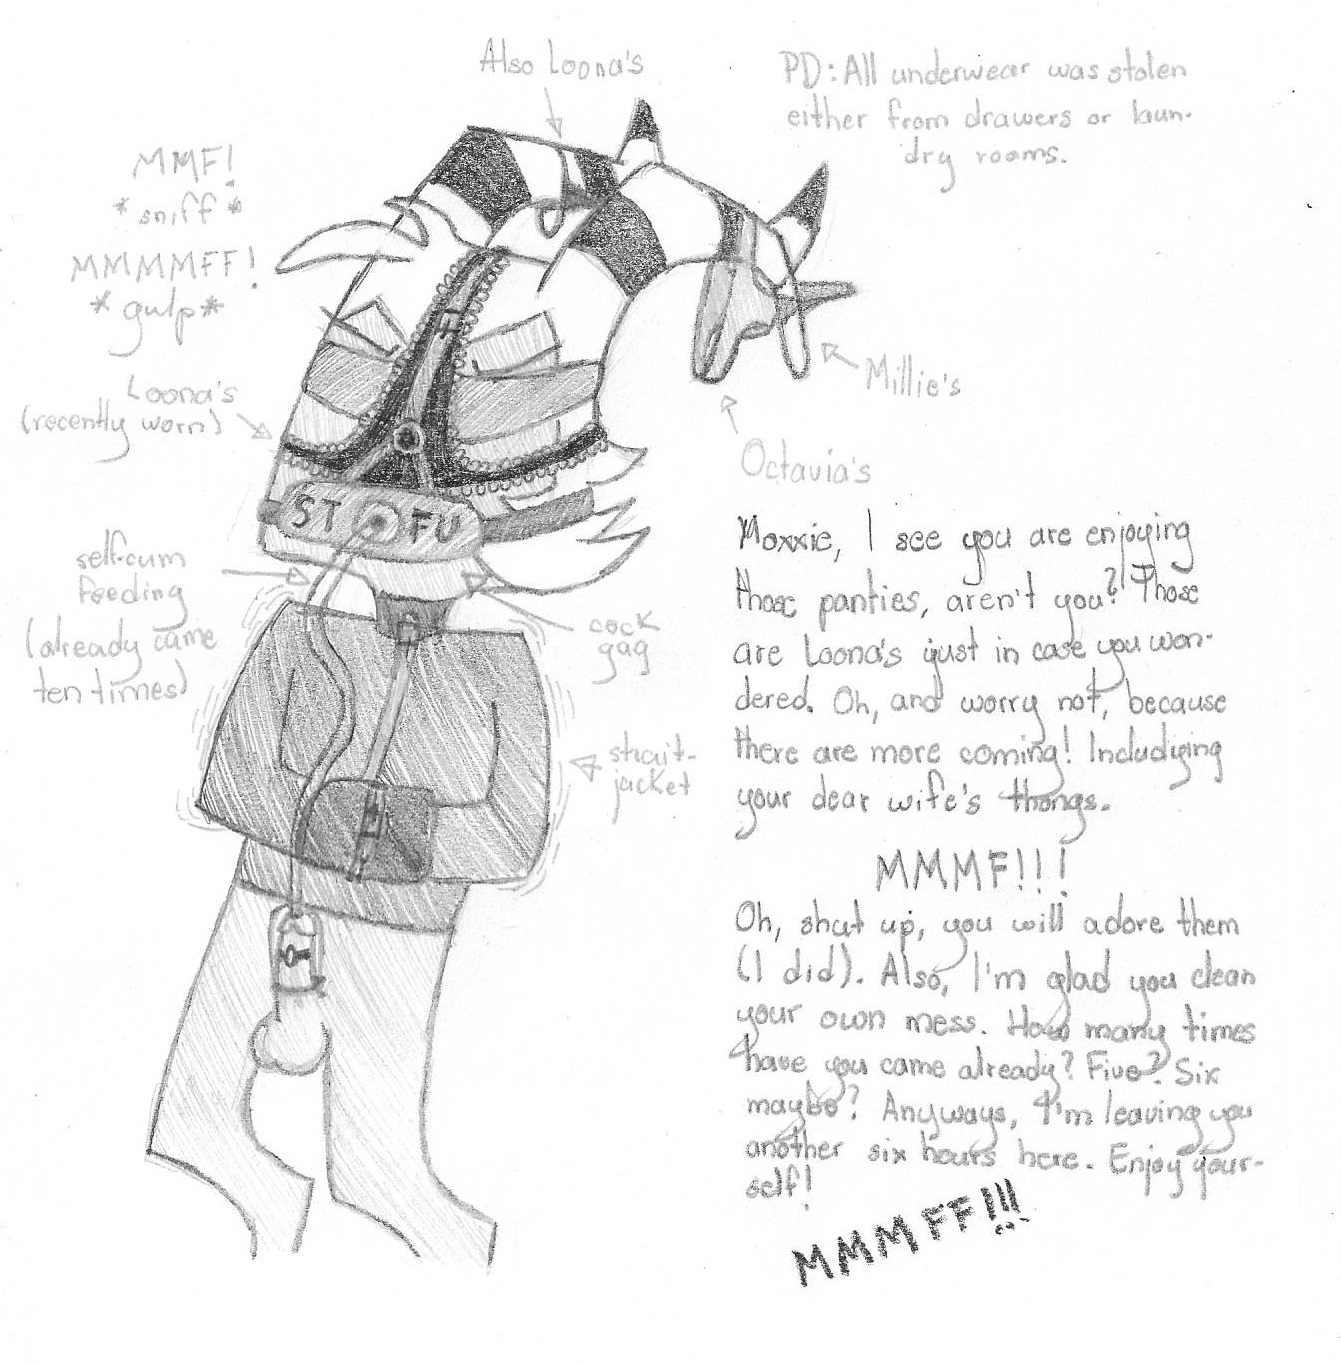 Also Loona's
PD: All underwear was stolen
either from drawers or laun-
dry rooms.
MMF!
*sniff*
MMMMFF!
*gulp*
Loona's
(recently worn)
Millie's
Octavia's
STFU
self-cum
feeding
(already came
ten times)
cock
gag
strait-
jacket
Moxxie, I see you are enjoying
those panties, aren't you? Those
are Loona's just in case you won-
dered. Oh, and worry not, because
there are more coming! Includiying
your dear wife's thongs.
MMMF!!!
Oh, shut up, you will adore them
(I did). Also, I'm glad you clean
your own mess. How many times
have you came already? Five? Six
maybe? Anyways, I'm leaving you
another six hours here. Enjoy your-
self!
MMMFF!!!